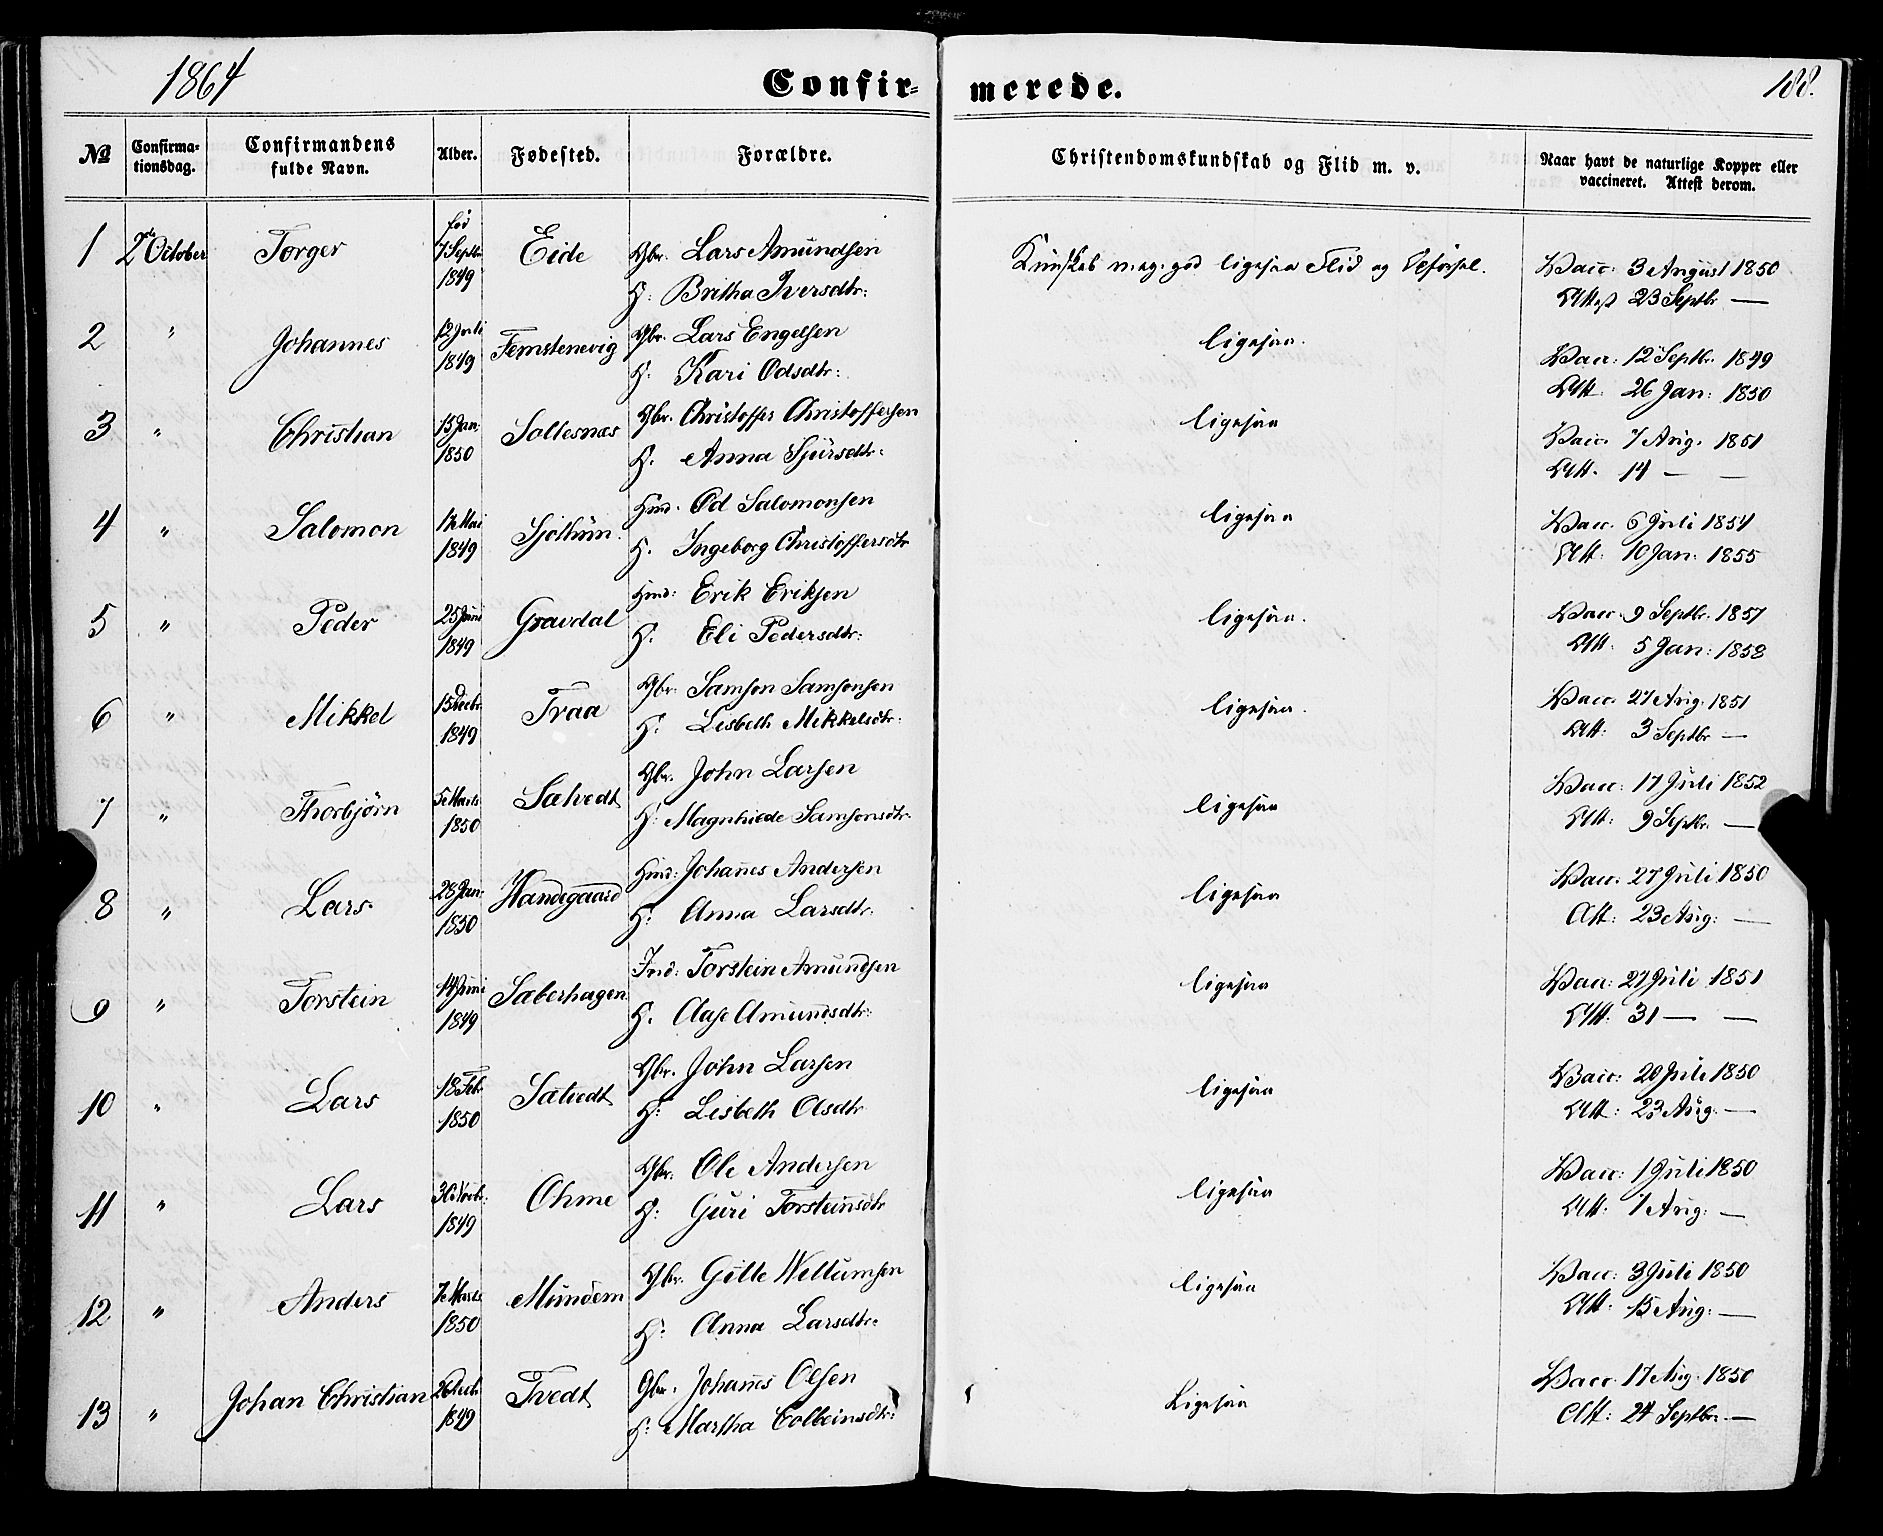 1864
Confir-
merede.
188.
No
Confirma-
tionsdag.
Confirmandens
fulde Navn.
Alder.
Fødested.
Forældre.
Christendomskundskab og Flid m. v.
Naar havt de naturlige Kopper eller
vaccineret. Attest derom.
1 2de October Torger fød 7 Septbr 1849 Eide Gbr. Lars Amundsen
H: Britha Iversdtr:
Kundskab meg. god ligesaa Flid og Opførsel.
Vacc: 3 August 1850
Attest 23 Septbr —
2 " Johannes 12 Juli 1849 Femstenevig Gbr. Lars Engelsen
H. Kari Odsdtr:
ligesaa.
Vacc: 12 Septbr. 1849
Att. 26 Jan: 1850
3 " Christian 15 Jan: 1850 Soltesnæs Gbr. Christoffer Christoffersen
H. Anna Sjursdtr:
ligesaa
Vacc. 7 Aug. 1851
Att. 14 — —
4 " Salomon Mai 1849 Sjothun Hmd. Od Salomonsen
H. Ingeborg Christoffersdtr
ligesaa
Vacc. 6 Juli 1854
Att: 10 Jan: 1855
5 " Peder 25 Juni 1849 Gravdal Hmd: Erik Eriksen
H. Eli Pedersdtr:
ligesaa.
Vacc. 9 Septbr. 1857
Att. 5 Jan: 1858
6 " Mikkel 15 Decbr. 1849 Traa Gbr. Samson Samsonsen
H. Lisbeth Mikkelsdtr:
ligesaa.
Vacc. 27 Aug. 1851
Att: 3 Septbr —
7 " Thorbjörn 5 Marts 1850 Salvedt Gbr. John Larsen
H: Magnhilde Samsonsdtr.
ligesaa
Vacc: 17 Juli 1852
Att: 9 Septbr. —
8 " Lars 28 Jan: 1850 Handegaard Hmd: Johannes Andersen
H: Anna Larsdtr.
ligesaa
Vacc. 27 Juli 1850
Att: 23 Aug: —
9 " Torstein 14 Juni 1849 Saberhagen Ind: Torstein Amundsen
H. Aase Amundsdtr:
ligesaa
Vacc: 27 Juli 1851
Att: 31 — —
10 " Lars 18 Feb 1850 Salvedt Gbr. John Larsen
H: Lisbeth Olsdtr
ligesaa
Vacc: 20 Juli 1850
Att: 23 Aug. —
11 " Lars 30 Novbr. 1849 Ohme Gbr. Ole Andersen
H: Guri Torsteinsdtr
ligesaa
Vacc: 1 Juli 1850
Att: 7 Aug: —
12 " Anders 7 Marts 1850 Mundem Gbr. Gitle Wellumsen
H: Anna Larsdtr:
ligesaa
Vacc: 3 Juli 1850
Att. 15 Aug: —
13 " Johan Christian 26 Decbr. 1849 Tvedt Gbr. Johannes Olsen
H: Martha Colbeinsdtr:
Ligesaa
Vacc. 17 Aug. 1850
Att: 24 Septbr. —